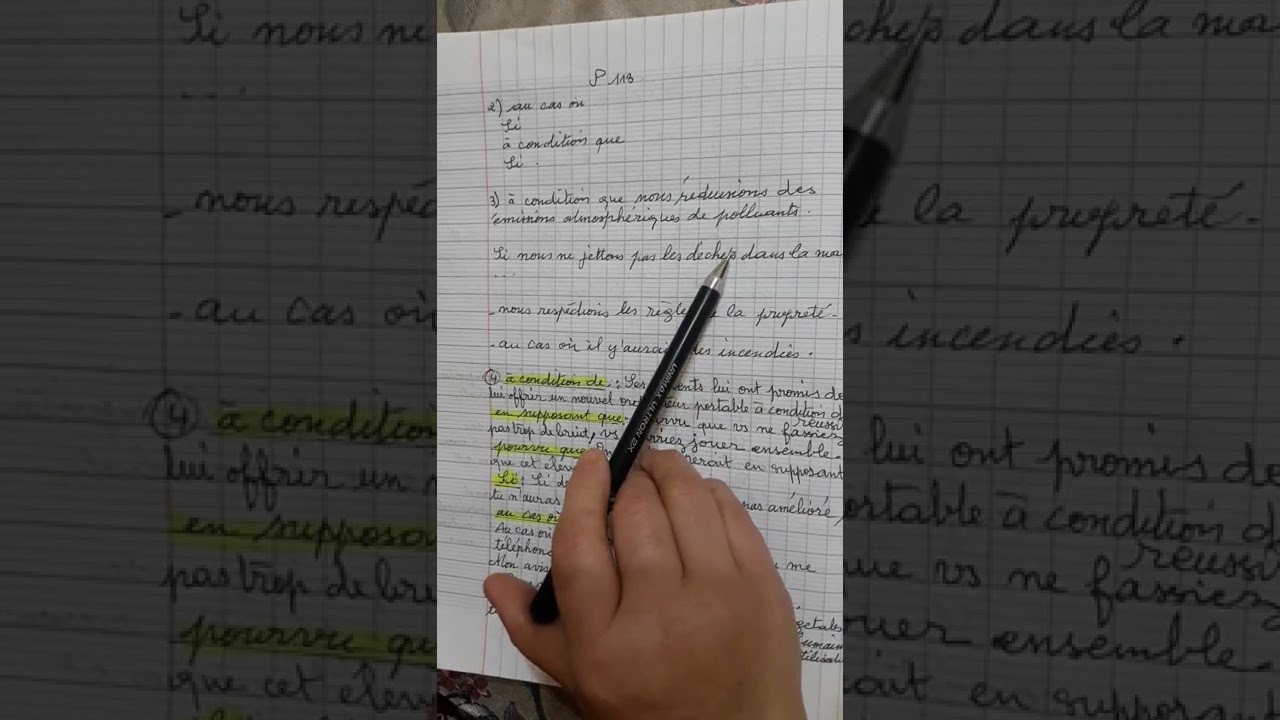 P 113
2) au cas où
Si
à condition que
Si .
3) à condition que nous réduisions des
émissions atmosphériques de polluants.
Si nous ne jettons pas les déchep dans la ma
...
- nous respéctions les règle la propreté.
- au cas où il y'aurai des incendiés.
4 à condition de : Ses ents lui ont promis de
lui offrir un nouvel ord eur portable à condition d
réussi
en supposant que: que vs ne fassiez
pas trop de bruit, vs riez jouer ensemble.
pourvu que
que cet élev erait en supposant
Si : Si
tu n'auras pas amélioré
au cas où
Au cas où
téléphon me
Mon avis
getales
humain
tilisat
UNIMAX ULTRON 2X